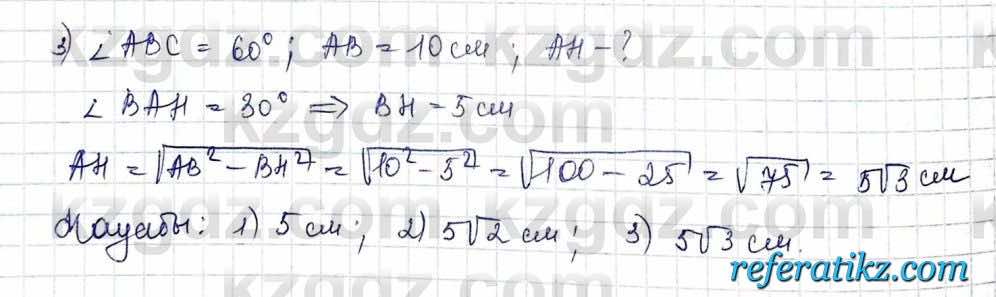 3) ∠ABC = 60°; AB = 10 см; AH - ?
∠BAH = 30° ⟹ BH - 5 см
AH = √AB² - BH² = √10² - 5² = √100 - 25 = √75 = 5√3 см
Жауабы: 1) 5 см; 2) 5√2 см; 3) 5√3 см.
kzgdz.com
referatikz.com